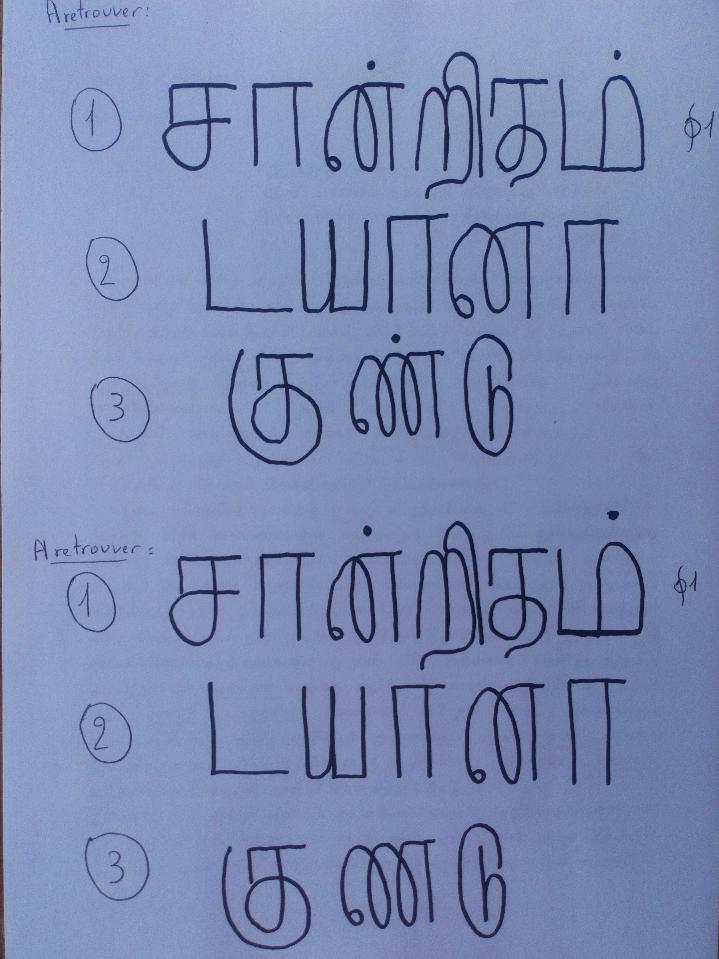 A retrouver :
1 சான்றிதம் ϕ1
2 டயானா
3 குண்டு
A retrouver :
1 சான்றிதம் ϕ1
2 டயானா
3 குணடு